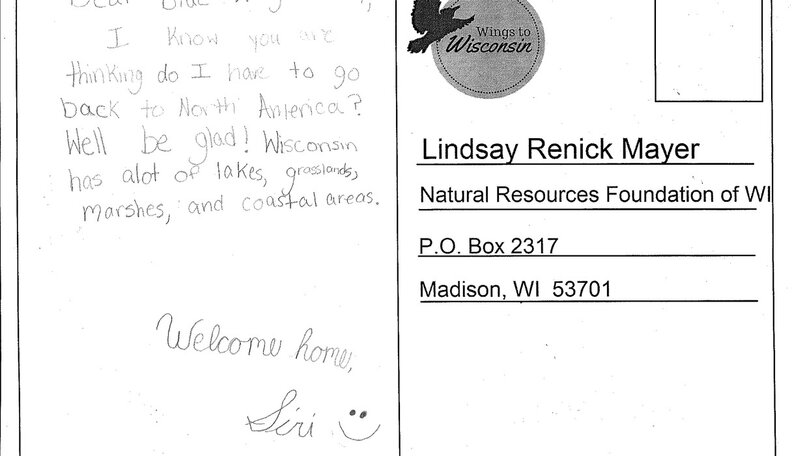 Dear Blue
I know you are
thinking do I have to go
back to North America?
Well be glad! Wisconsin
has alot of lakes, grasslands,
marshes, and coastal areas.
Welcome home,
Siri
Wings to
Wisconsin
Lindsay Renick Mayer
Natural Resources Foundation of WI
P.O. Box 2317
Madison, WI 53701